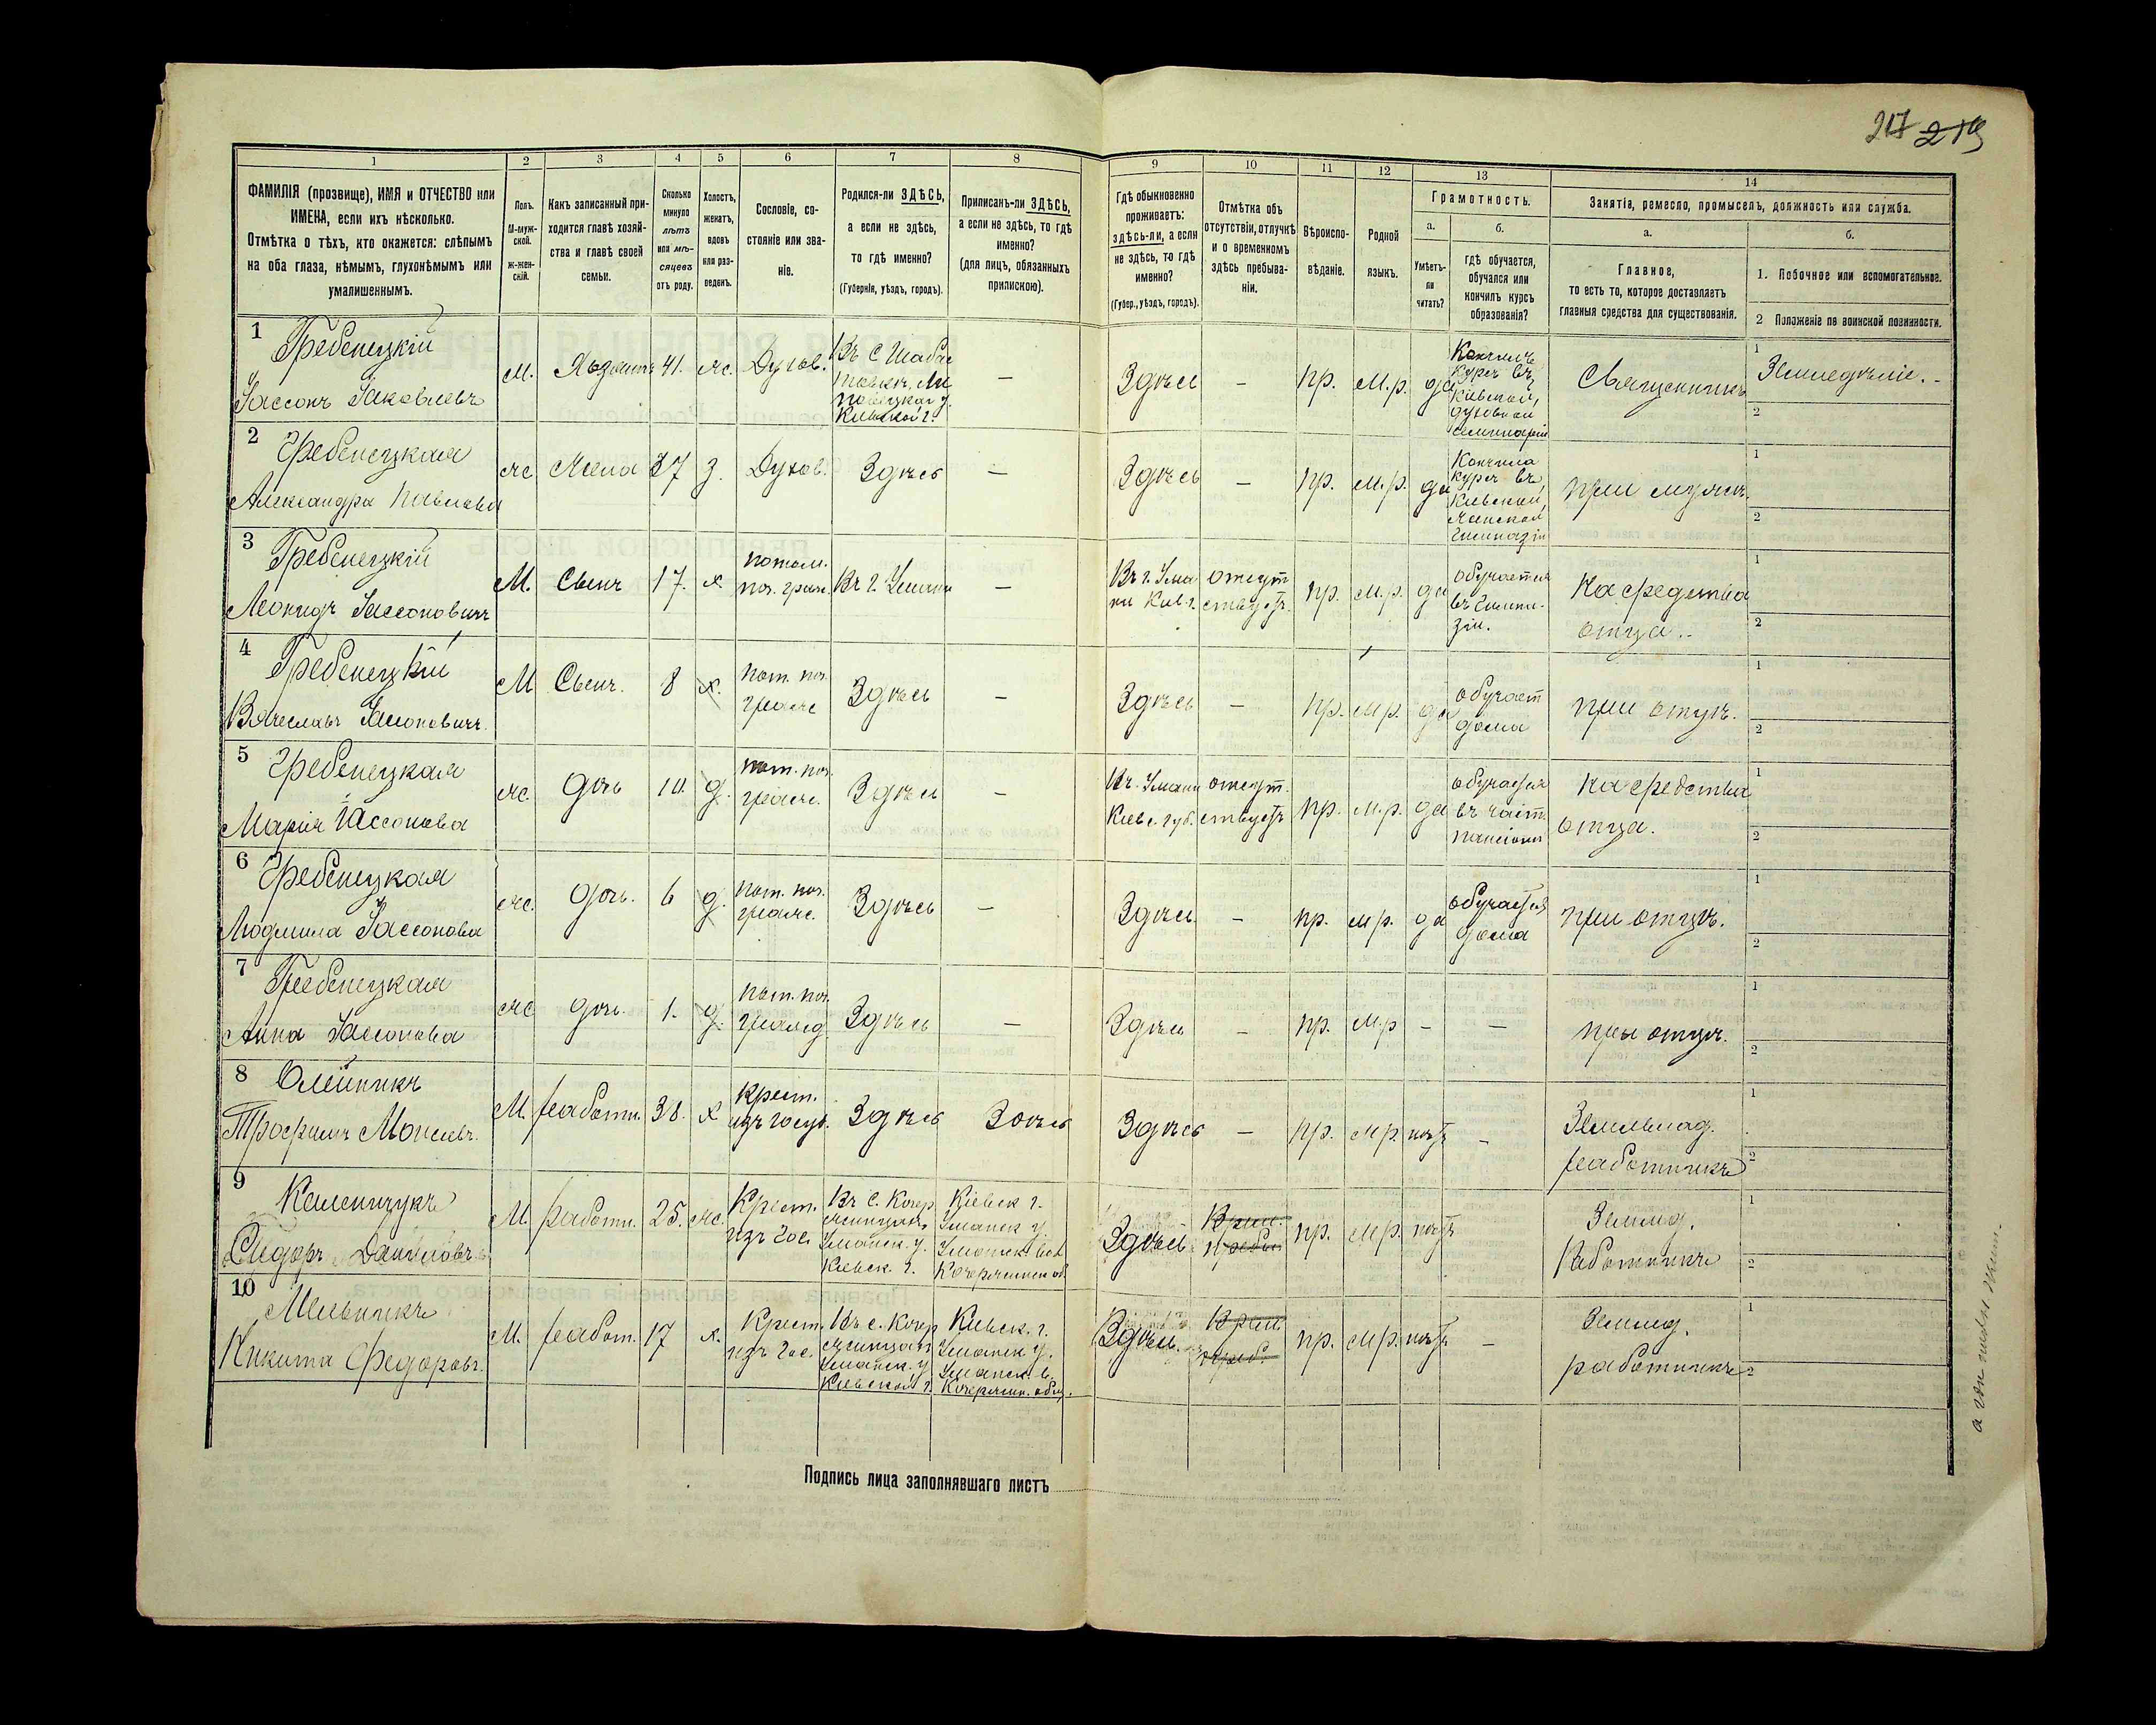 217 219
1 2 3 4 5 6 7 8 9 10 11 12 13 14
ФАМИЛІЯ (прозвище), ИМЯ и ОТЧЕСТВО или
ИМЕНА, если ихъ нѣсколько.
Отмѣтка о тѣхъ, кто окажется: слѣпымъ
на оба глаза, нѣмымъ, глухонѣмымъ или
умалишеннымъ.
Полъ.
М-муж-
ской.
ж-жен-
скій.
Какъ записанный при-
ходится главѣ хозяй-
ства и главѣ своей
семьи.
Сколько
минуло
лѣтъ
или мѣ-
сяцевъ
отъ роду.
Холостъ,
женатъ,
вдовъ
или раз-
веденъ.
Сословіе, со-
стояніе или зва-
ніе.
Родился-ли ЗДѢСЬ,
а если не здѣсь,
то гдѣ именно?
(Губернія, уѣздъ, городъ).
Приписанъ-ли ЗДѢСЬ,
а если не здѣсь, то гдѣ
именно?
(для лицъ, обязанныхъ
припискою).
Гдѣ обыкновенно
проживаетъ:
здѣсь-ли, а если
не здѣсь, то гдѣ
именно?
(Губер., уѣздъ, городъ).
Отмѣтка объ
отсутствіи, отлучкѣ
и о временномъ
здѣсь пребыва-
ніи.
Вѣроиспо-
вѣданіе.
Родной
языкъ.
Грамотность.
а.
Умѣетъ-
ли
читать?
б.
гдѣ обучается,
обучался или
кончилъ курсъ
образованія?
Занятія, ремесло, промыселъ, должность или служба.
а.
Главное,
то есть то, которое доставляетъ
главныя средства для существованія.
б.
1. Побочное или вспомогательное.
2 Положеніе по воинской повинности.
1 Гребенецкій
Іассонъ Іаковлевъ
М. Хозяинъ 41. ж. Духов.
Въ с Шабас
товкѣ, Ли
повецкаго у.
Кіевской г.
—
Здѣсь – пр. м.р. да
Кончилъ
курсъ въ
Кіевской
духовной
семинаріи
Священникъ
1 Земледѣліе. -
2
2 Гребенецкая
Александра Павлова
ж Жена 37 з. Духов. Здѣсь —
Здѣсь – пр. м.р. да
Кончила
курсъ въ
Кіевской
женской
гимназіи
при мужѣ.
1
2
3 Гребенецкій
Леонидъ Іассоновичъ
М. Сынъ 17. х.
потом.
поч. граж.
Въ г. Умани —
Въ г. Ума
ни Кіев г.
отсут
ствуетъ.
пр. м.р. да
обучается
въ гимна-
зіи.
На средства
отца. -
1
2
4 Гребенецкій
Вячеславъ Іассоновичъ
М Сынъ. 8 х.
пот. поч.
граж
Здѣсь —
Здѣсь – пр. м.р. да
обучает
дома
при отцѣ.
1
2
5 Гребенецкая
Марія Іассонова
ж. дочь 10. д.
пот. поч.
граж.
Здѣсь —
Въ. Умани
Кіев. губ.
отсут.
ствуетъ
пр. м.р. да
обучается
въ част.
пансіонѣ
На средства
отца.
1
2
6 Гребенецкая
Людмила Іассонова
ж. дочь. 6 д.
пот. поч.
граж.
Здѣсь —
Здѣсь – пр. м р. да
обучается
дома
при отцѣ.
1
2
7 Гребенецкая
Анна Іассонова
ж дочь. 1. д.
пот. поч.
гражд
Здѣсь —
Здѣсь – пр. м.р – —
при отцѣ.
1
2
8 Олейникъ
Трофимъ Моисеевъ.
М. работн. 38. х
крест.
изъ госуд.
Здѣсь Здѣсь
Здѣсь – пр. м р. нѣтъ –
Земельлад.
работникъ
1
2
9 Каменчукъ
Сидоръ Даниловъ
М. работн. 25. ж.
Крест.
изъ гос.
Въ с. Кочер
жинцахъ,
Уманск. у.
Кіевск. г.
Кіевск г.
Уманск у.
Уманск. вол
Кочержинск об.
Здѣсь
Врем.
преб.
пр. м р. нѣтъ
Землед.
Работникъ
1
2
10 Мельникъ
Никита Федоровъ.
М. работ. 17 х.
Крест.
изъ гос.
Въ с. Кочер
жинцахъ
Уманск. у
Кіевской г.
Кіевск. г.
Уманск у.
Уманск. в.
Кочержин. общ.
Здѣсь.
Врем.
преб.
пр. м р. нѣтъ –
Землед.
работникъ
1
2
Подпись лица заполнявшаго листъ